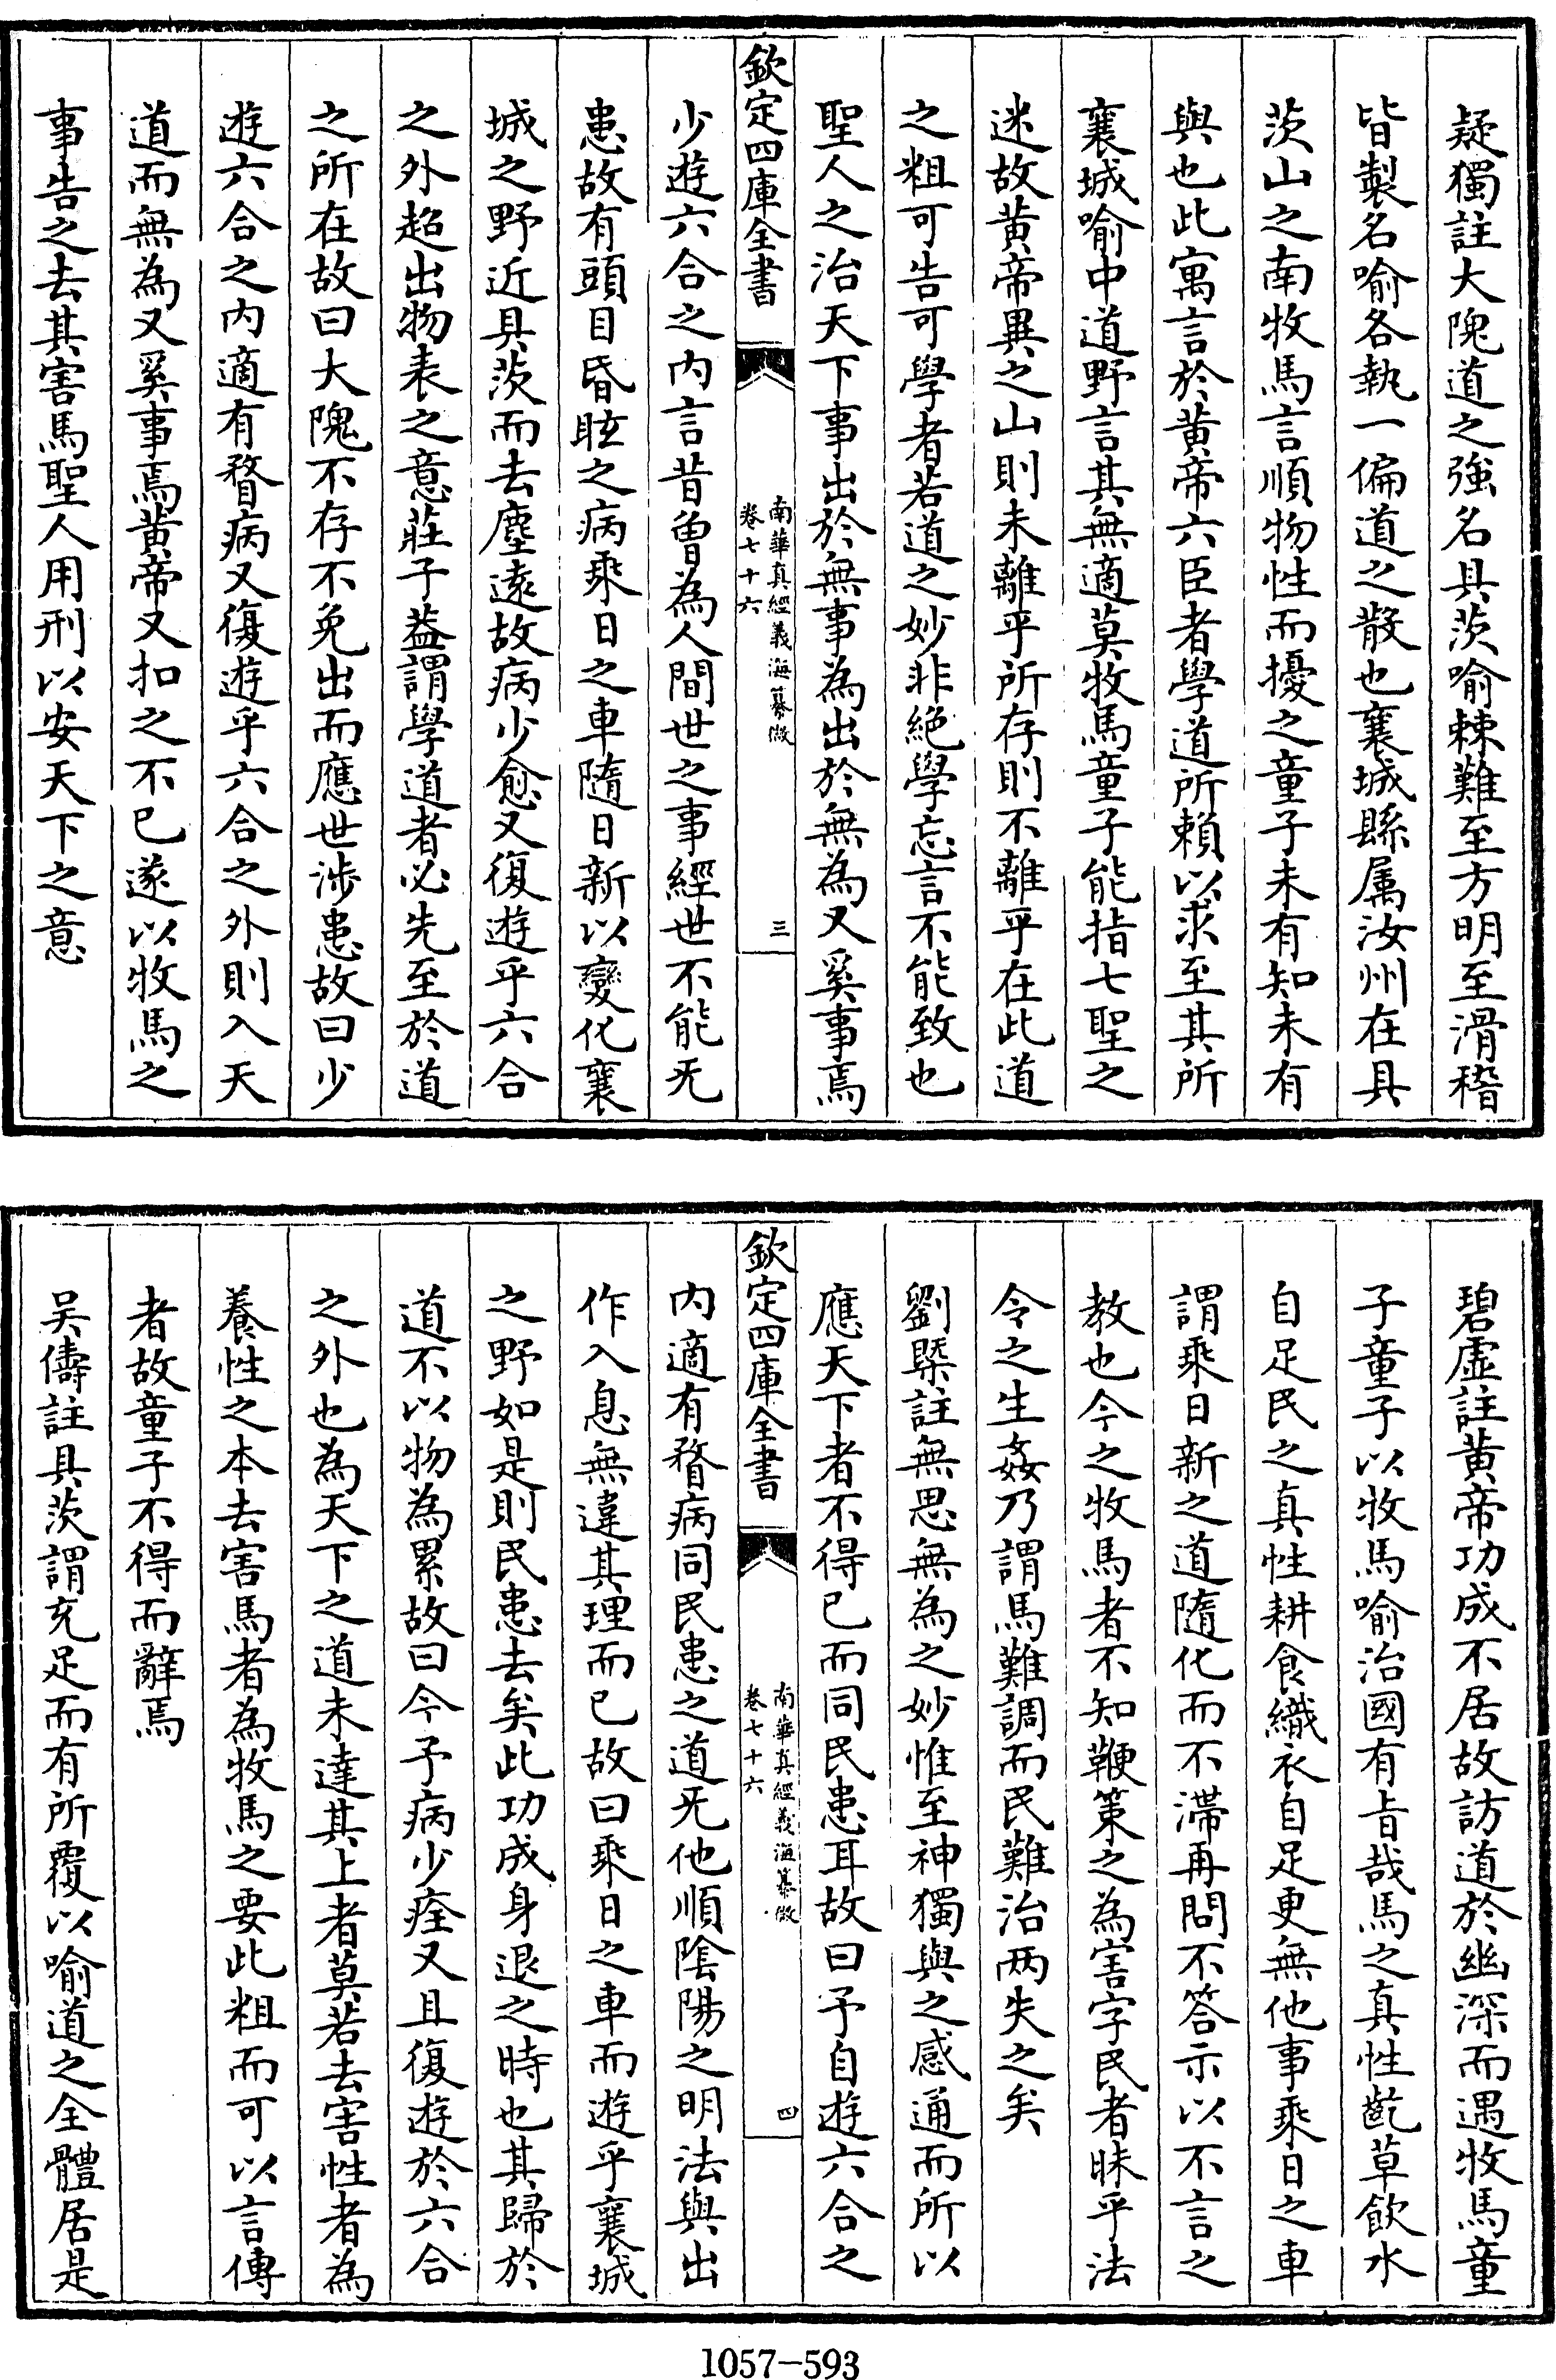 疑獨註大隗道之強名具茨喻棘難至方明至滑稽
皆製名喻各執一偏道之散也襄城縣属汝州在具
茨山之南牧馬言順物性而擾之童子未有知未有
與也此寓言於黄帝六臣者學道所賴以求至其所
襄城喻中道野言其無適莫牧馬童子能指七聖之
迷故黄帝異之山則未離乎所存則不離乎在此道
之粗可告可學者若道之妙非絶學忘言不能致也
聖人之治天下事出於無事為出於無為又奚事焉
欽定四庫全書
南華真經義海纂微
卷七十六
三
少遊六合之内言昔曾為人間世之事經世不能无
患故有頭目昏眩之病乘日之車隨日新以變化襄
城之野近具茨而去塵逺故病少愈又復遊乎六合
之外超出物表之意莊子葢謂學道者必先至於道
之所在故曰大隗不存不免出而應世涉患故曰少
遊六合之内適有瞀病又復遊乎六合之外則入天
道而無為又奚事焉黄帝又扣之不已遂以牧馬之
事告之去其害馬聖人用刑以安天下之意
碧虚註黄帝功成不居故訪道於幽深而遇牧馬童
子童子以牧馬喻治國有㫖哉馬之真性齕草飲水
自足民之真性耕食織衣自足更無他事乘日之車
謂乘日新之道隨化而不滯再問不答示以不言之
教也今之牧馬者不知鞭策之為害字民者昧乎法
令之生姦乃謂馬難調而民難治两失之矣
劉槩註無思無為之妙惟至神獨與之感通而所以
應天下者不得已而同民患耳故曰予自遊六合之
欽定四庫全書
南華真經義海纂微
卷七十六
四
内適有瞀病同民患之道无他順陰陽之明法與出
作入息無違其理而已故曰乘日之車而遊乎襄城
之野如是則民患去矣此功成身退之時也其歸於
道不以物為累故曰今予病少痊又且復遊於六合
之外也為天下之道未達其上者莫若去害性者為
養性之本去害馬者為牧馬之要此粗而可以言傳
者故童子不得而辭焉
吴儔註具茨謂充足而有所覆以喻道之全體居是
1057-593